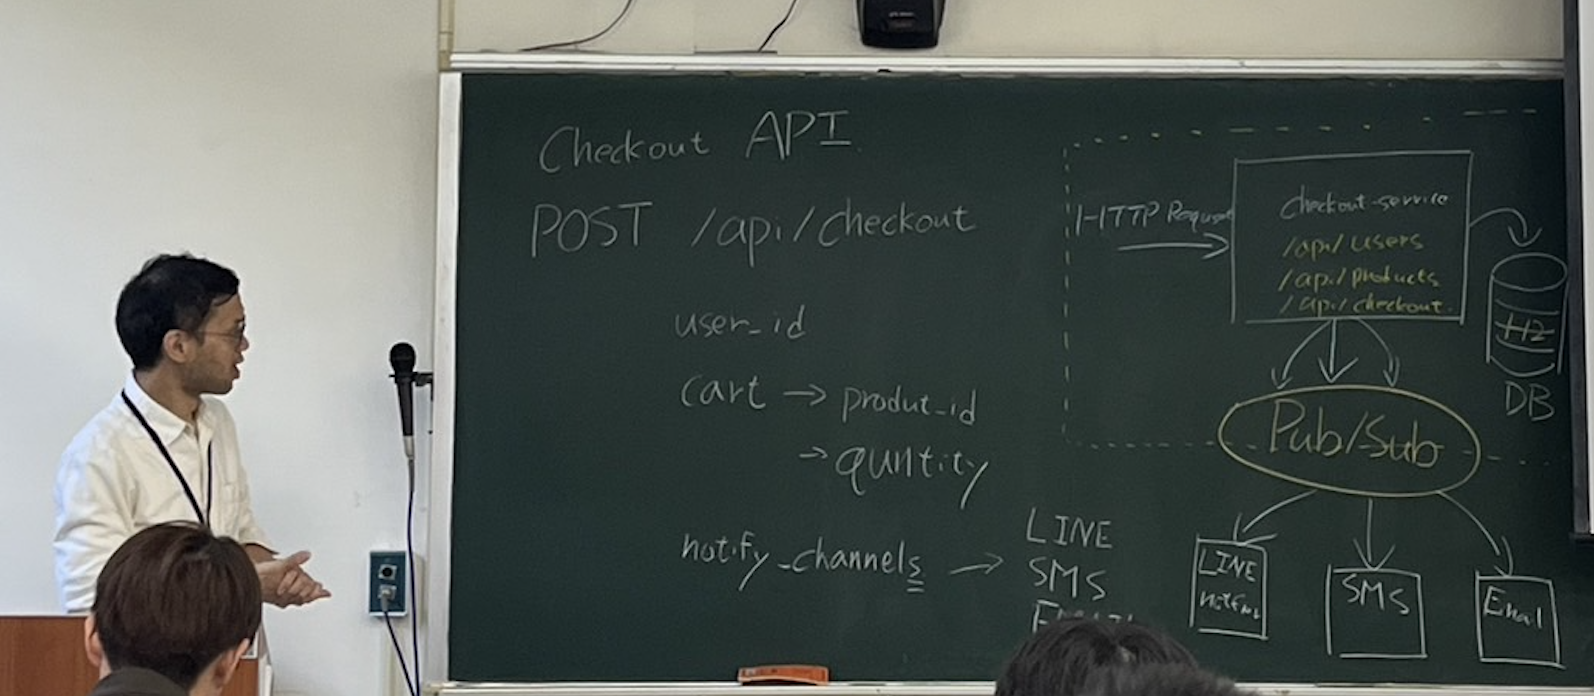 Checkout API
POST /api/checkout
user_id
cart → produt_id
→ quntity
notify_channels →
LINE
SMS
HTTP Request
checkout-service
/api/users
/api/products
/api/checkout
H2
DB
Pub/Sub
LINE
SMS
Email